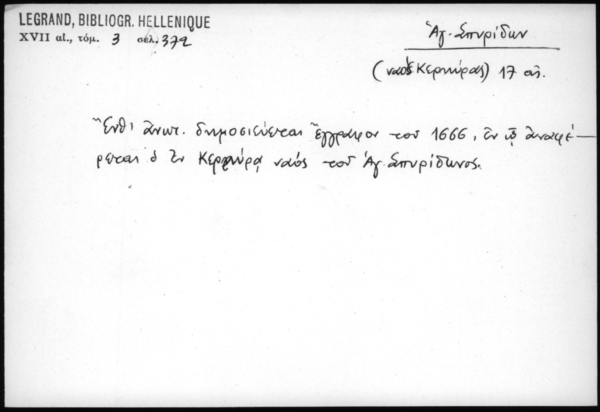 LEGRAND, BIBLIOGR. HELLENIQUE
XVII αἰ., τόμ. 3 σελ. 372
Ἅγ. Σπυρίδων
(ναὸς Κερκύρας) 17 αἰ.
Ἔνθ' ἀνωτ. δημοσιεύεται ἔγγραφον τοῦ 1666, ἐν ᾧ ἀναφέ-
ρεται ὁ ἐν Κερκύρᾳ ναός τοῦ Ἁγ. Σπυρίδωνος.